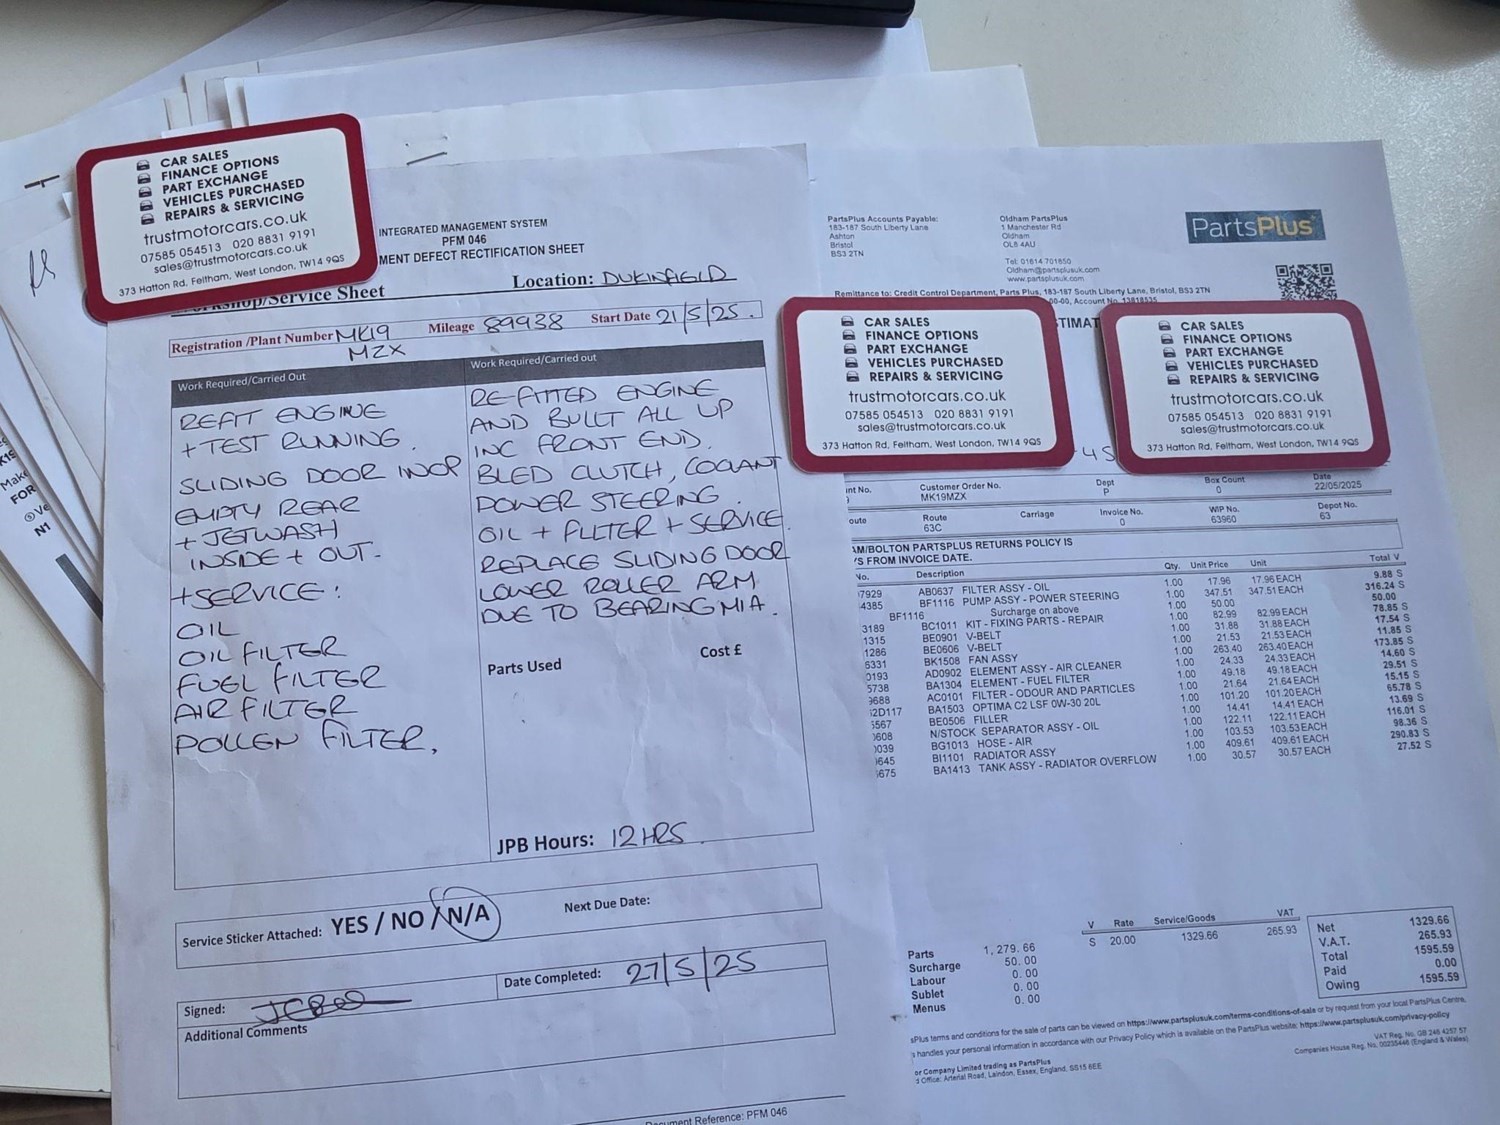 CAR SALES
FINANCE OPTIONS
PART EXCHANGE
VEHICLES PURCHASED
REPAIRS & SERVICING
trustmotorcars.co.uk
07585 054513 020 8831 9191
sales@trustmotorcars.co.uk
373 Hatton Rd, Feltham, West London, TW14 9QS
INTEGRATED MANAGEMENT SYSTEM
PFM 046
MENT DEFECT RECTIFICATION SHEET
/Service Sheet
Location: DUKINFIELD
Registration /Plant Number MK19 MZX
Mileage 89938
Start Date 21/5/25.
Work Required/Carried Out
REFIT ENGINE
+ TEST RUNNING.
SLIDING DOOR INOP
EMPTY REAR
+ JETWASH
INSIDE + OUT.
+ SERVICE:
OIL
OIL FILTER
FUEL FILTER
AIR FILTER
POLLEN FILTER.
Work Required/Carried out
RE-FITTED ENGINE
AND BUILT ALL UP
INC FRONT END.
BLED CLUTCH, COOLANT
POWER STEERING.
OIL + FILTER + SERVICE.
REPLACE SLIDING DOOR
LOWER ROLLER ARM
DUE TO BEARING MIA.
Parts Used Cost £
JPB Hours: 12 HRS.
Service Sticker Attached: YES / NO / N/A
Next Due Date:
Signed:
Date Completed: 27/5/25
Additional Comments
ument Reference: PFM 046
Make
FOR
N1
PartsPlus Accounts Payable:
183-187 South Liberty Lane
Ashton
Bristol
BS3 2TN
Oldham PartsPlus
1 Manchester Rd
Oldham
OL8 4AU
Tel: 01614 701850
Oldham@partsplusuk.com
www.partsplusuk.com
PartsPlus
Remittance to: Credit Control Department, Parts Plus, 183-187 South Liberty Lane, Bristol, BS3 2TN
00-00, Account No. 13818535
TIMAT
CAR SALES
FINANCE OPTIONS
PART EXCHANGE
VEHICLES PURCHASED
REPAIRS & SERVICING
trustmotorcars.co.uk
07585 054513 020 8831 9191
sales@trustmotorcars.co.uk
373 Hatton Rd, Feltham, West London, TW14 9QS
CAR SALES
FINANCE OPTIONS
PART EXCHANGE
VEHICLES PURCHASED
REPAIRS & SERVICING
trustmotorcars.co.uk
07585 054513 020 8831 9191
sales@trustmotorcars.co.uk
373 Hatton Rd, Feltham, West London, TW14 9QS
nt No. Customer Order No. Dept Box Count Date
MK19MZX P 0 22/05/2025
oute Route Carriage Invoice No. WIP No. Depot No.
63C 0 63960 63
AM/BOLTON PARTSPLUS RETURNS POLICY IS
'S FROM INVOICE DATE.
No. Description Qty. Unit Price Unit Total V
7929 AB0637 FILTER ASSY - OIL 1.00 17.96 17.96 EACH 9.88 S
4385 BF1116 PUMP ASSY - POWER STEERING 1.00 347.51 347.51 EACH 316.24 S
BF1116 Surcharge on above 1.00 50.00 50.00
3189 BC1011 KIT - FIXING PARTS - REPAIR 1.00 82.99 82.99 EACH 78.85 S
1315 BE0901 V-BELT 1.00 31.88 31.88 EACH 17.54 S
1286 BE0606 V-BELT 1.00 21.53 21.53 EACH 11.85 S
5331 BK1508 FAN ASSY 1.00 263.40 263.40 EACH 173.85 S
0193 AD0902 ELEMENT ASSY - AIR CLEANER 1.00 24.33 24.33 EACH 14.60 S
5738 BA1304 ELEMENT - FUEL FILTER 1.00 49.18 49.18 EACH 29.51 S
9688 AC0101 FILTER - ODOUR AND PARTICLES 1.00 21.64 21.64 EACH 15.15 S
2D117 BA1503 OPTIMA C2 LSF 0W-30 20L 1.00 101.20 101.20 EACH 65.78 S
5567 BE0506 FILLER 1.00 14.41 14.41 EACH 13.69 S
0608 N/STOCK SEPARATOR ASSY - OIL 1.00 122.11 122.11 EACH 116.01 S
0039 BG1013 HOSE - AIR 1.00 103.53 103.53 EACH 98.36 S
9645 BI1101 RADIATOR ASSY 1.00 409.61 409.61 EACH 290.83 S
5675 BA1413 TANK ASSY - RADIATOR OVERFLOW 1.00 30.57 30.57 EACH 27.52 S
Parts 1,279.66
Surcharge 50.00
Labour 0.00
Sublet 0.00
Menus 0.00
V Rate Service/Goods VAT
S 20.00 1329.66 265.93
Net 1329.66
V.A.T. 265.93
Total 1595.59
Paid 0.00
Owing 1595.59
sPlus terms and conditions for the sale of parts can be viewed on https://www.partsplusuk.com/terms-conditions-of-sale or by request from your local PartsPlus Centre,
handles your personal information in accordance with our Privacy Policy which is available on the PartsPlus website: https://www.partsplusuk.com/privacy-policy
VAT Reg. No. GB 246 4257 57
Companies House Reg. No. 00235446 (England & Wales)
or Company Limited trading as PartsPlus
d Office: Arterial Road, Laindon, Essex, England, SS15 6EE